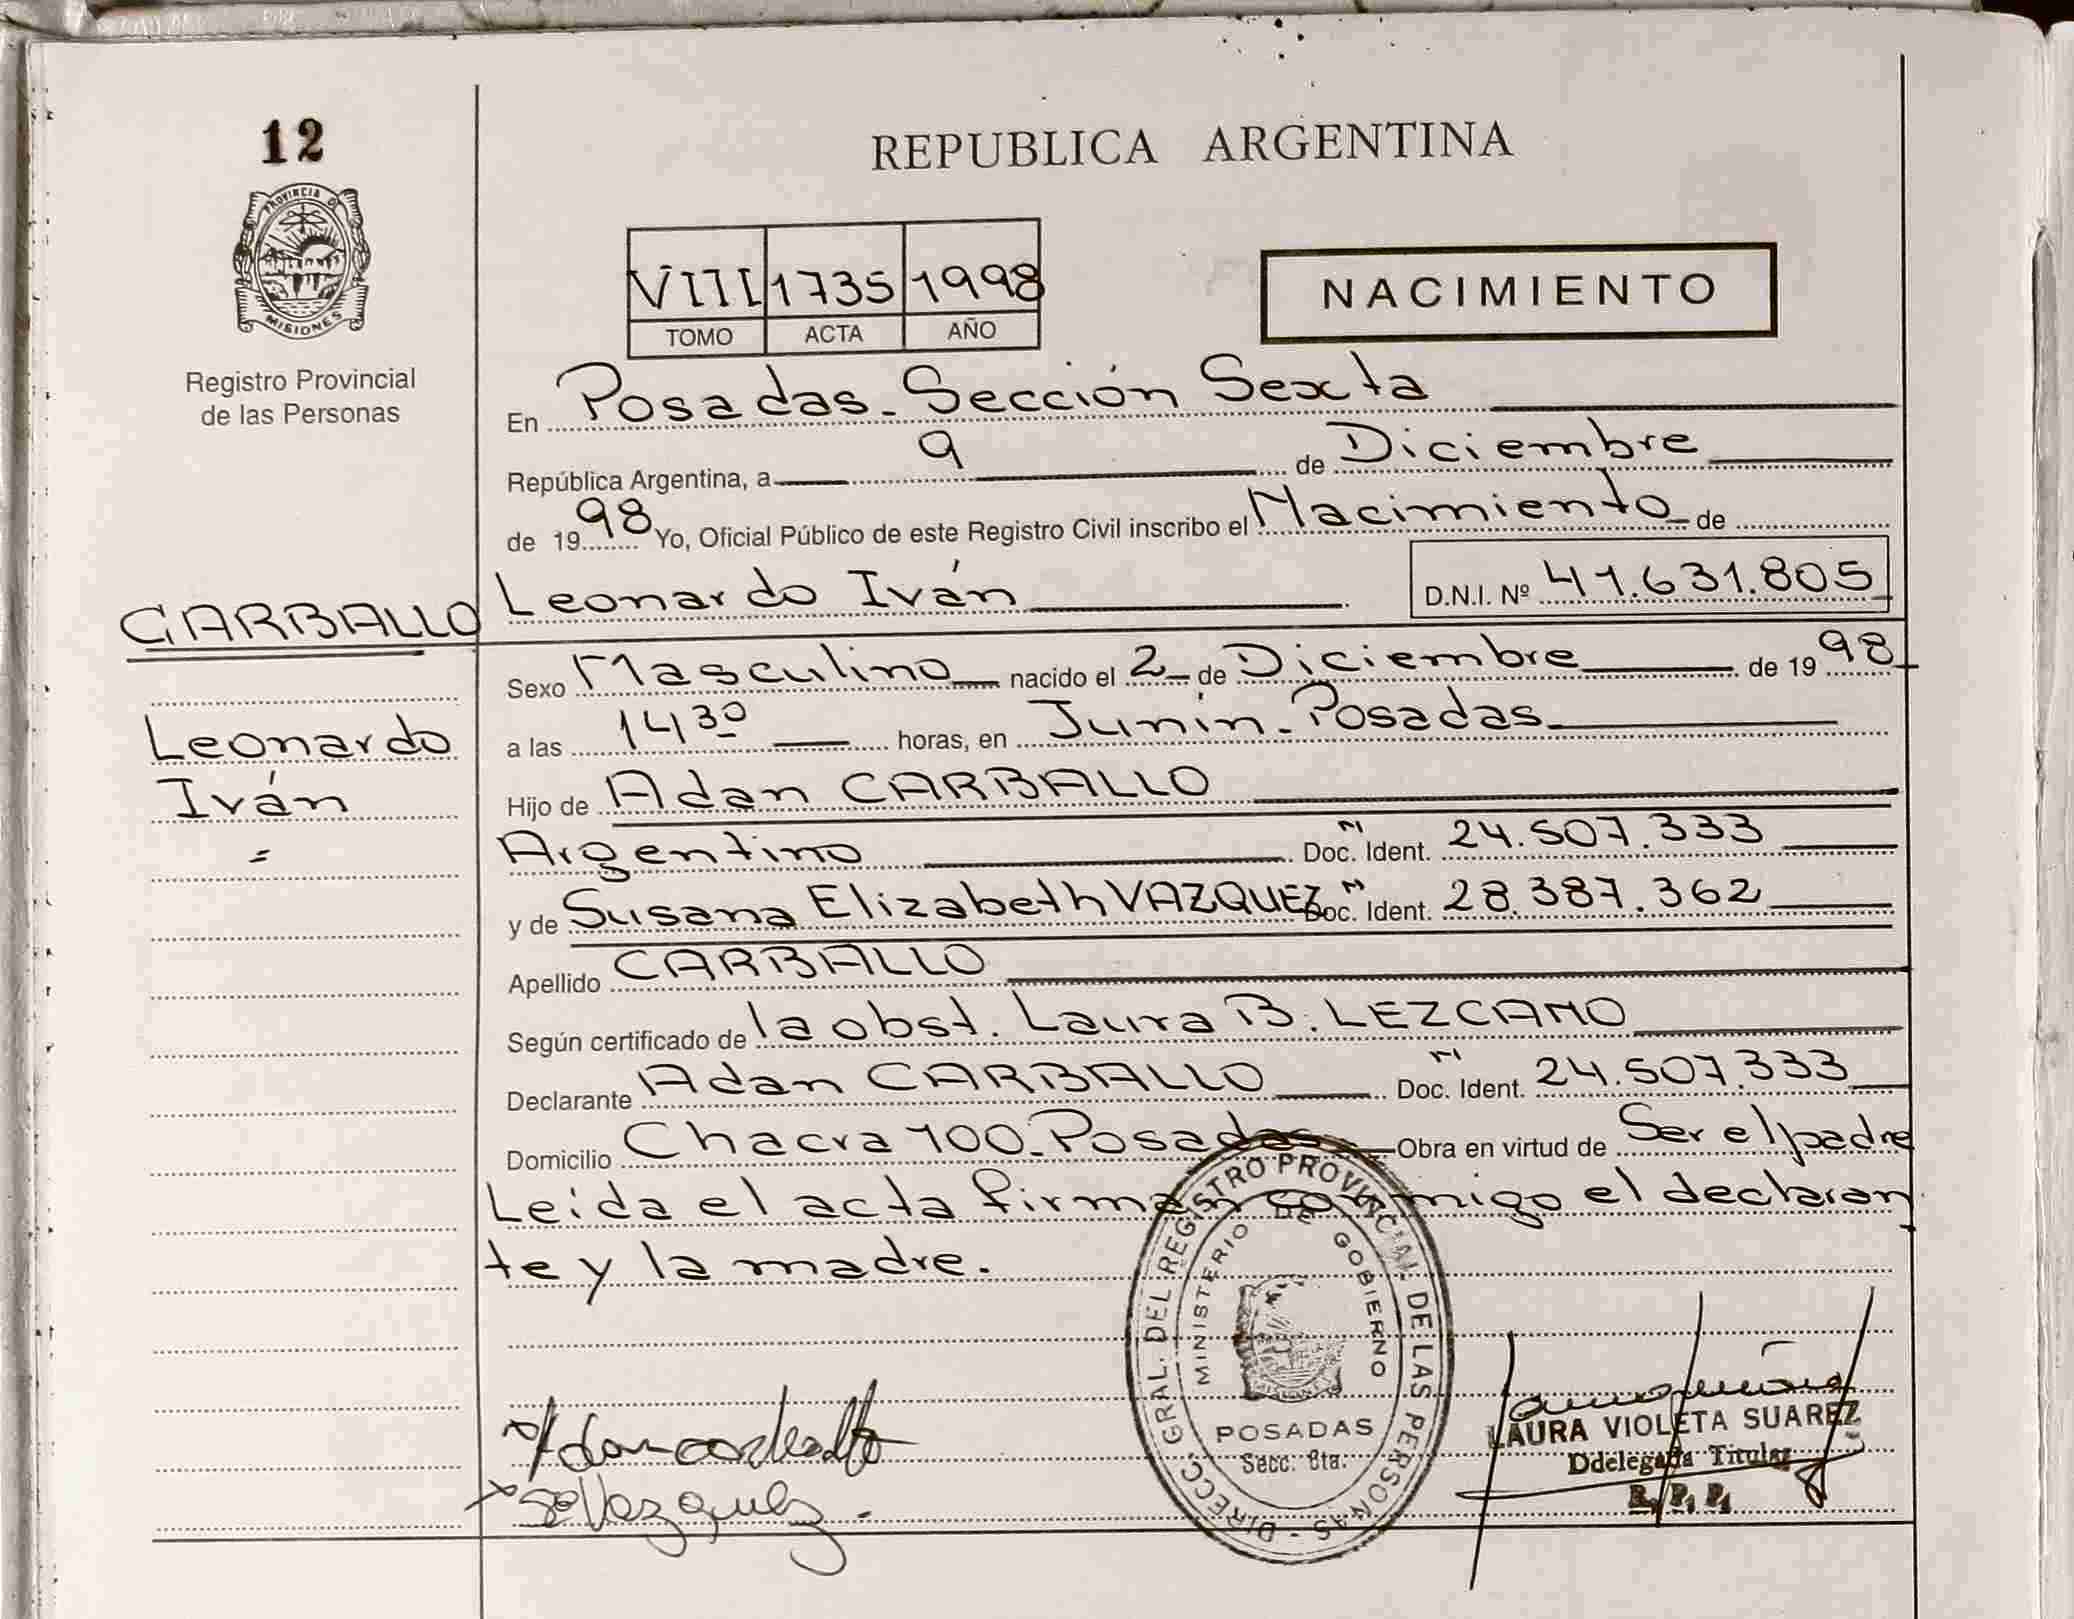 12
PROVINCIA D
MISIONES
Registro Provincial
de las Personas
REPUBLICA ARGENTINA
VIII 1735 1998
TOMO ACTA AÑO
NACIMIENTO
En Posadas - Sección Sexta
República Argentina, a 9 de Diciembre
de 1998 Yo, Oficial Público de este Registro Civil inscribo el Nacimiento de
CARBALLO Leonardo Iván D.N.I. Nº 41.631.805
Leonardo
Iván
=
Sexo Masculino nacido el 2 de Diciembre de 1998
a las 14 30 horas, en Junín - Posadas
Hijo de Adan CARBALLO
Argentino Doc. Ident. 24.507.333
y de Susana Elizabeth VAZQUEZ Doc. Ident. 28.387.362
Apellido CARBALLO
Según certificado de la obst. Laura B. LEZCANO
Declarante Adan CARBALLO Doc. Ident. 24.507.333
Domicilio Chacra 100 - Posadas Obra en virtud de Ser el padre
Leída el acta firman conmigo el declaran
te y la madre.
DIRECC. GRAL. DEL REGISTRO PROVINCIAL DE LAS PERSONAS -
MINISTERIO DE GOBIERNO
POSADAS
Secc. 6ta.
Adan carballo
SEVazquez.
LAURA VIOLETA SUAREZ
Ddelegada Titular
R. P. P.